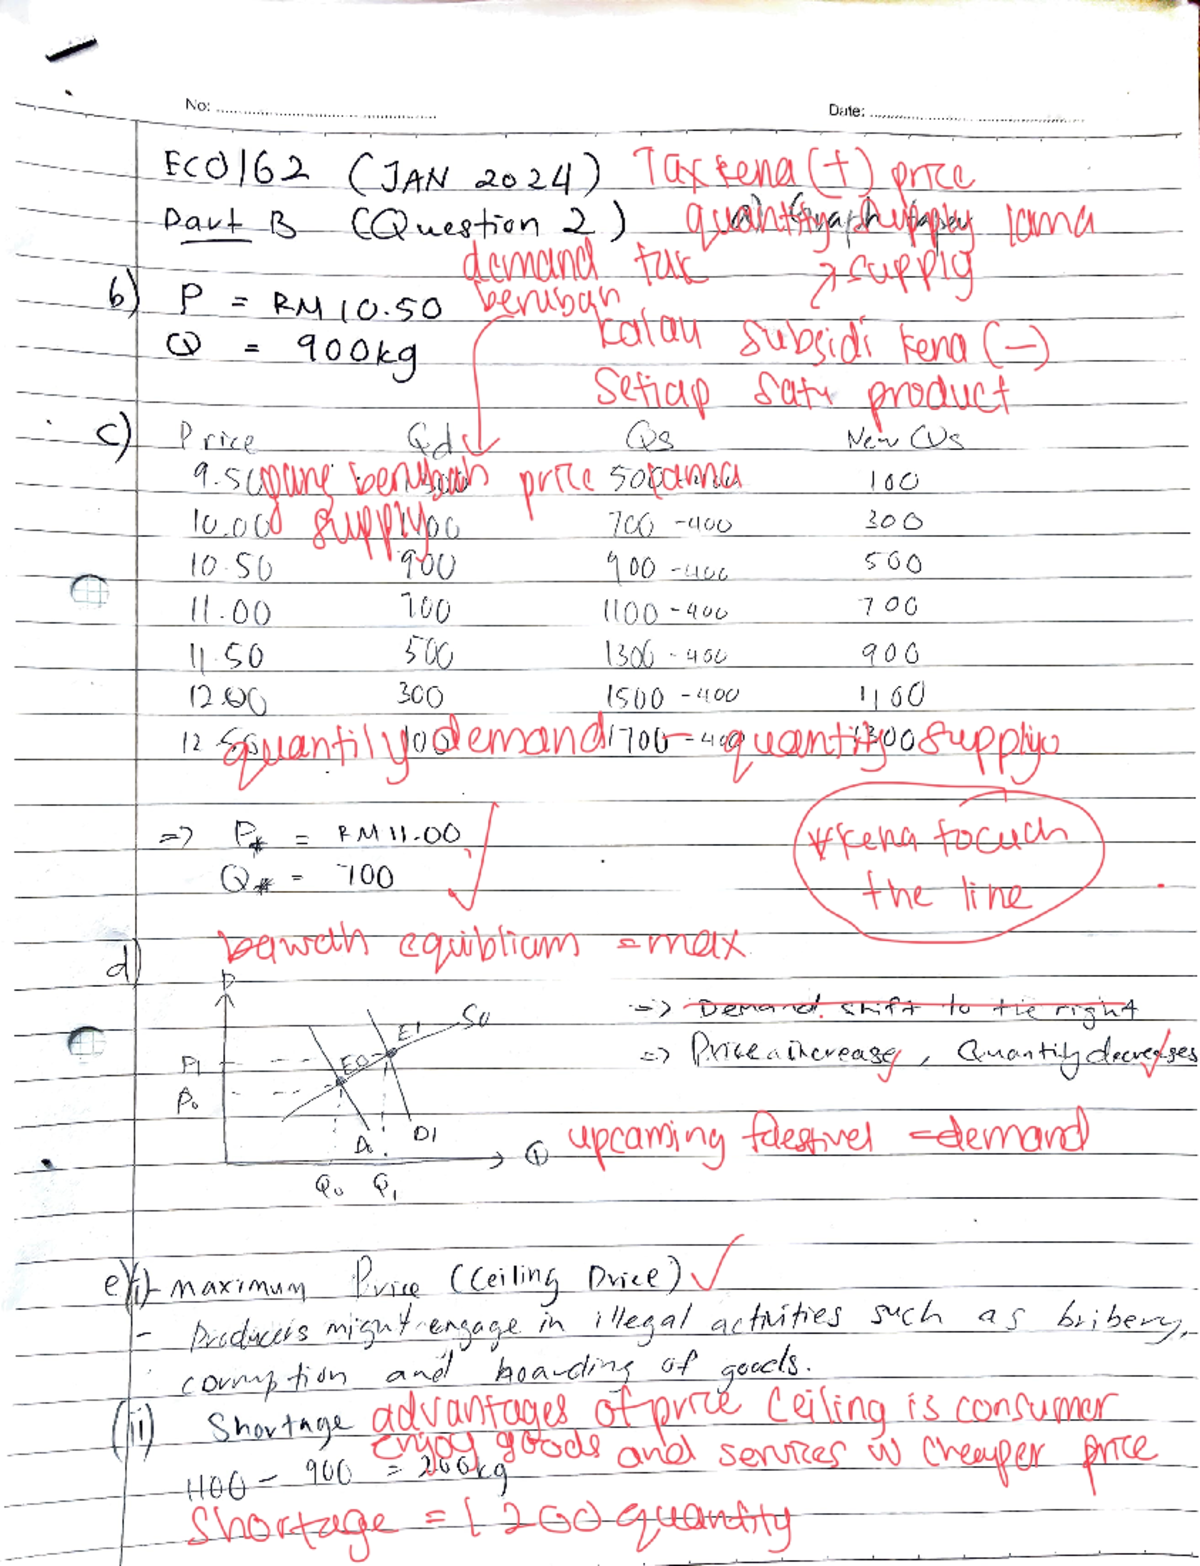 No: ........................ Date: ........................
ECO162 (JAN 2024) Tax kena (+) price
Part B (Question 2) quantity supply lama
demand tak ↗ supply
b) P = RM 10.50 berubah
kalau subsidi kena (−)
Q = 900kg
Setiap satu product
c) Price Qd Qs New Qs
9.50 yang berubah price 500 lama 100
10.00 supply 700 -400 300
10.50 900 900 -400 500
11.00 700 1100 -400 700
11.50 500 1300 -400 900
12.00 300 1500 -400 1100
12.50 100 1700 -400 1300
quantity demand − quantity supply
=> P* = RM 11.00
Q* = 700
*kena focuch
the line
bawah equiblium = max
d)
P
=> Demand shift to the right
=> Price increase, Quantity decreases
S0
E1
E0
P1
P0
D1
Q
upcoming fdestivel = demand
Q0 Q1
e)i)- maximum Price (Ceiling Price)
- Producers might engage in illegal activities such as bribery,
corruption and hoarding of goods.
(ii) Shortage advantages of price ceiling is consumer
enjoy goods and services in cheaper price
1100 - 900 = 200kg
Shortage = 1200 quantity